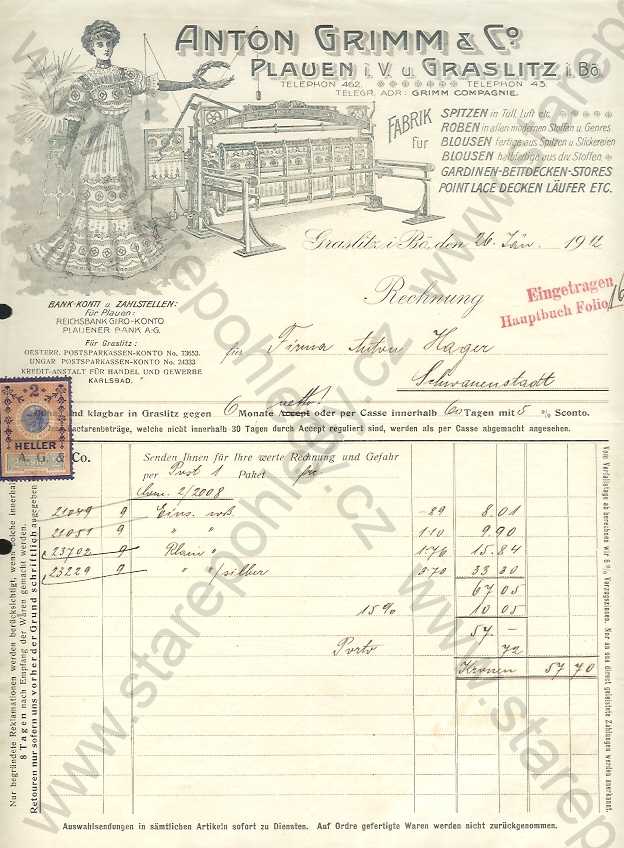 ANTON GRIMM & Co
PLAUEN i. V. u. GRASLITZ i. Bö.
TELEPHON 462. TELEPHON 43.
TELEGR. ADR: GRIMM COMPAGNIE.
FABRIK für
SPITZEN in Tüll, Luft etc.
ROBEN in allen modernen Stoffen u. Genres
BLOUSEN fertige aus Spitzen u. Stickereien
BLOUSEN halbfertige aus div. Stoffen
GARDINEN-BETTDECKEN-STORES
POINT LACE DECKEN LÄUFER ETC.
Graslitz i. Bö, den 26 Jän. 1912
Rechnung
Eingetragen
Hauptbuch Folio 16
BANK-KONTI u. ZAHLSTELLEN:
Für Plauen:
REICHSBANK GIRO-KONTO
PLAUENER BANK A-G.
Für Graslitz:
OESTERR. POSTSPARKASSEN-KONTO No. 73653.
UNGAR POSTSPARKASSEN-KONTO No. 24333
KREDIT-ANSTALT FÜR HANDEL UND GEWERBE
KARLSBAD.
für Firma Anton Hager
Schwanenstadt
netto!
und klagbar in Graslitz gegen 6 Monate Accept oder per Casse innerhalb 60 Tagen mit 5 % Sconto.
Facturenbeträge, welche nicht innerhalb 30 Tagen durch Accept reguliert sind, werden als per Casse abgemacht angesehen.
2
HELLER
A. G. & Co.
Senden Ihnen für Ihre werte Rechnung und Gefahr
per Post 1 Paket
2/2008
21049 9 Eins. wß -89 8.01
21051 9 " " 1.10 9.90
23702 9 Plain " 1.76 15.84
23229 9 " "/silber 3.70 33 30
67 05
15% 10 05
57.-
Porto 72
Kronen 57 70
Nur begründete Reklamationen werden berücksichtigt, wenn solche innerhalb
8 Tagen nach Empfang der Waren gemacht werden.
Retouren nur sofern uns vorher der Grund schriftlich angegeben
Vom Verfallstage ab berechnen wir 6 % Verzugszinsen. Nur an uns direkt geleistete Zahlungen werden anerkannt.
Auswahlsendungen in sämtlichen Artikeln sofort zu Diensten. Auf Ordre gefertigte Waren werden nicht zurückgenommen.
www.starepohledy.cz